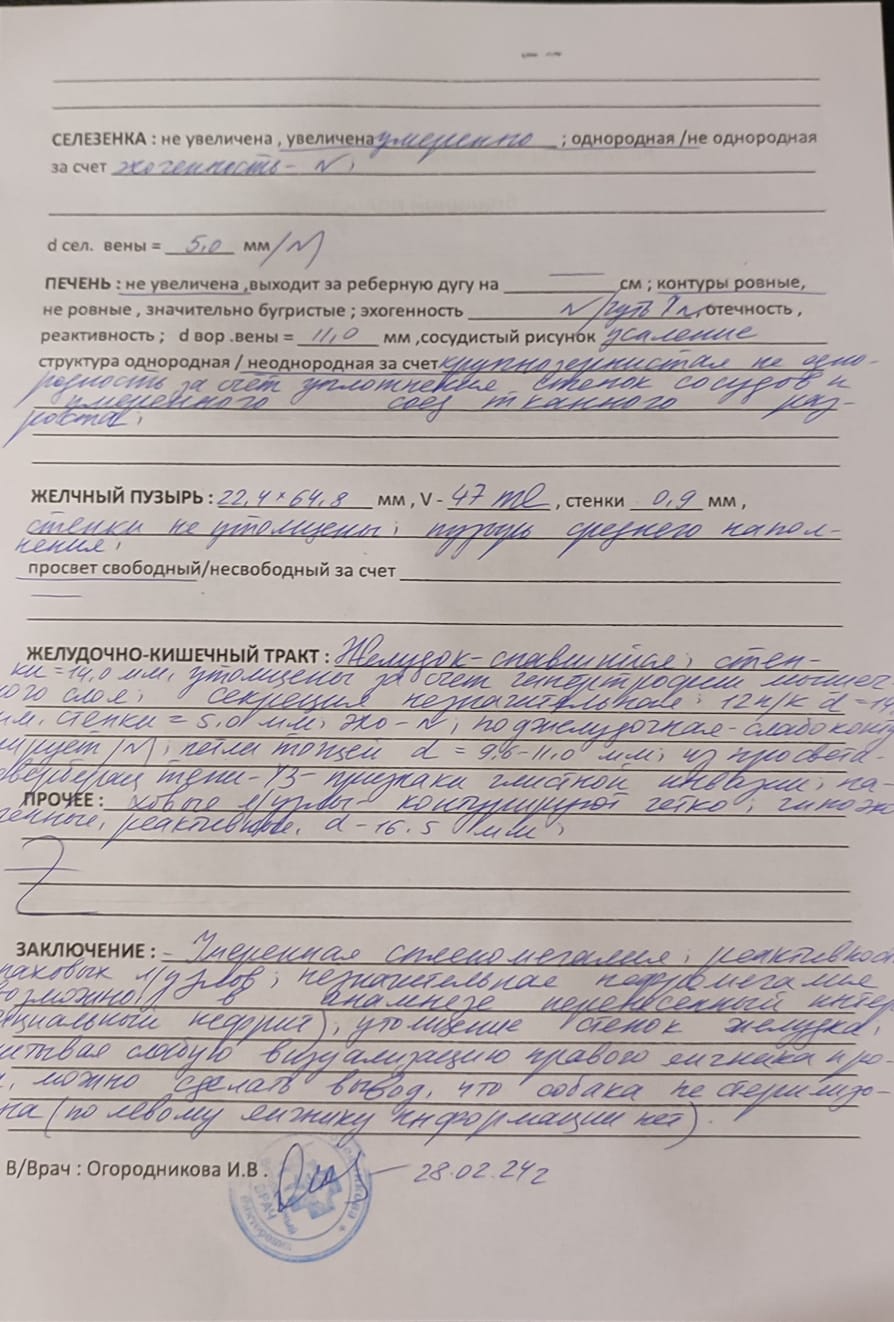 СЕЛЕЗЕНКА : не увеличена , увеличена умеренно ; однородная /не однородная
за счет эхогенность - N ;
d сел. вены = 5,0 мм /N/
ПЕЧЕНЬ : не увеличена ,выходит за реберную дугу на см ; контуры ровные,
не ровные , значительно бугристые ; эхогенность N/чуть ↑ ,отечность ,
реактивность ; d вор .вены = 11,0 мм ,сосудистый рисунок усиление
структура однородная / неоднородная за счет крупнозернистая не одно-
родность за счет уплотнения стенок сосудов и
умеренного соед тканного раз-
роста ;
ЖЕЛЧНЫЙ ПУЗЫРЬ : 22,4 × 64,8 мм , V - 47 ml , стенки 0,9 мм ,
стенки не утолщены ; пузырь среднего напол-
нения ;
просвет свободный/несвободный за счет
ЖЕЛУДОЧНО-КИШЕЧНЫЙ ТРАКТ : Желудок - спавшийся ; стен-
ки = 14,0 мм, утолщены за счет гипертрофии мышеч-
ного слоя ; секреция незначительная ; 12 п/к d = 14
мм, стенки = 5,0 мм, эхо - N ; поджелудочная - слабоконту
ирует /N/ ; петли тощей d = 9,6 - 11,0 мм ; из просвета -
еверберац тени - УЗ - признаки глистной инвазии ; па-
ПРОЧЕЕ : ховые л/узлы - контурируют четко ; гипоэхо
генные, реактивные, d - 16,5 мм ;
ЗАКЛЮЧЕНИЕ : - Умеренная спленомегалия ; реактивнос
паховых л/узлов ; незначительная нефромегалия
возможно в анамнезе перенесенный интер
ициальный нефрит) ; утолщение стенок желудка ;
итывая слабую визуализацию правого яичника и ро-
, можно сделать вывод, что собака не стерилизо-
на (по левому яичнику информации нет).
В/Врач : Огородникова И.В . 28.02.24г
ВРАЧ